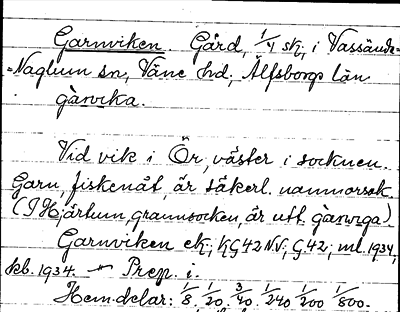 Garnviken. Gård, 1/4 sk., i Vassända-
-Naglum sn, Väne hd, Älfsborgs län
gàrvika.
Vid vik i Ör, väster i socknen.
Garn, fiskenät, är säkerl. namnorsak.
(I Hjärtum, grannsocken, är utt. gàrviga).
Garnviken ek, KG42NV, G42; ml. 1934,
kb. 1934. Prep. i.
Hem.delar: 1/8, 1/20. 3/40. 1/240 1/200 1/800.